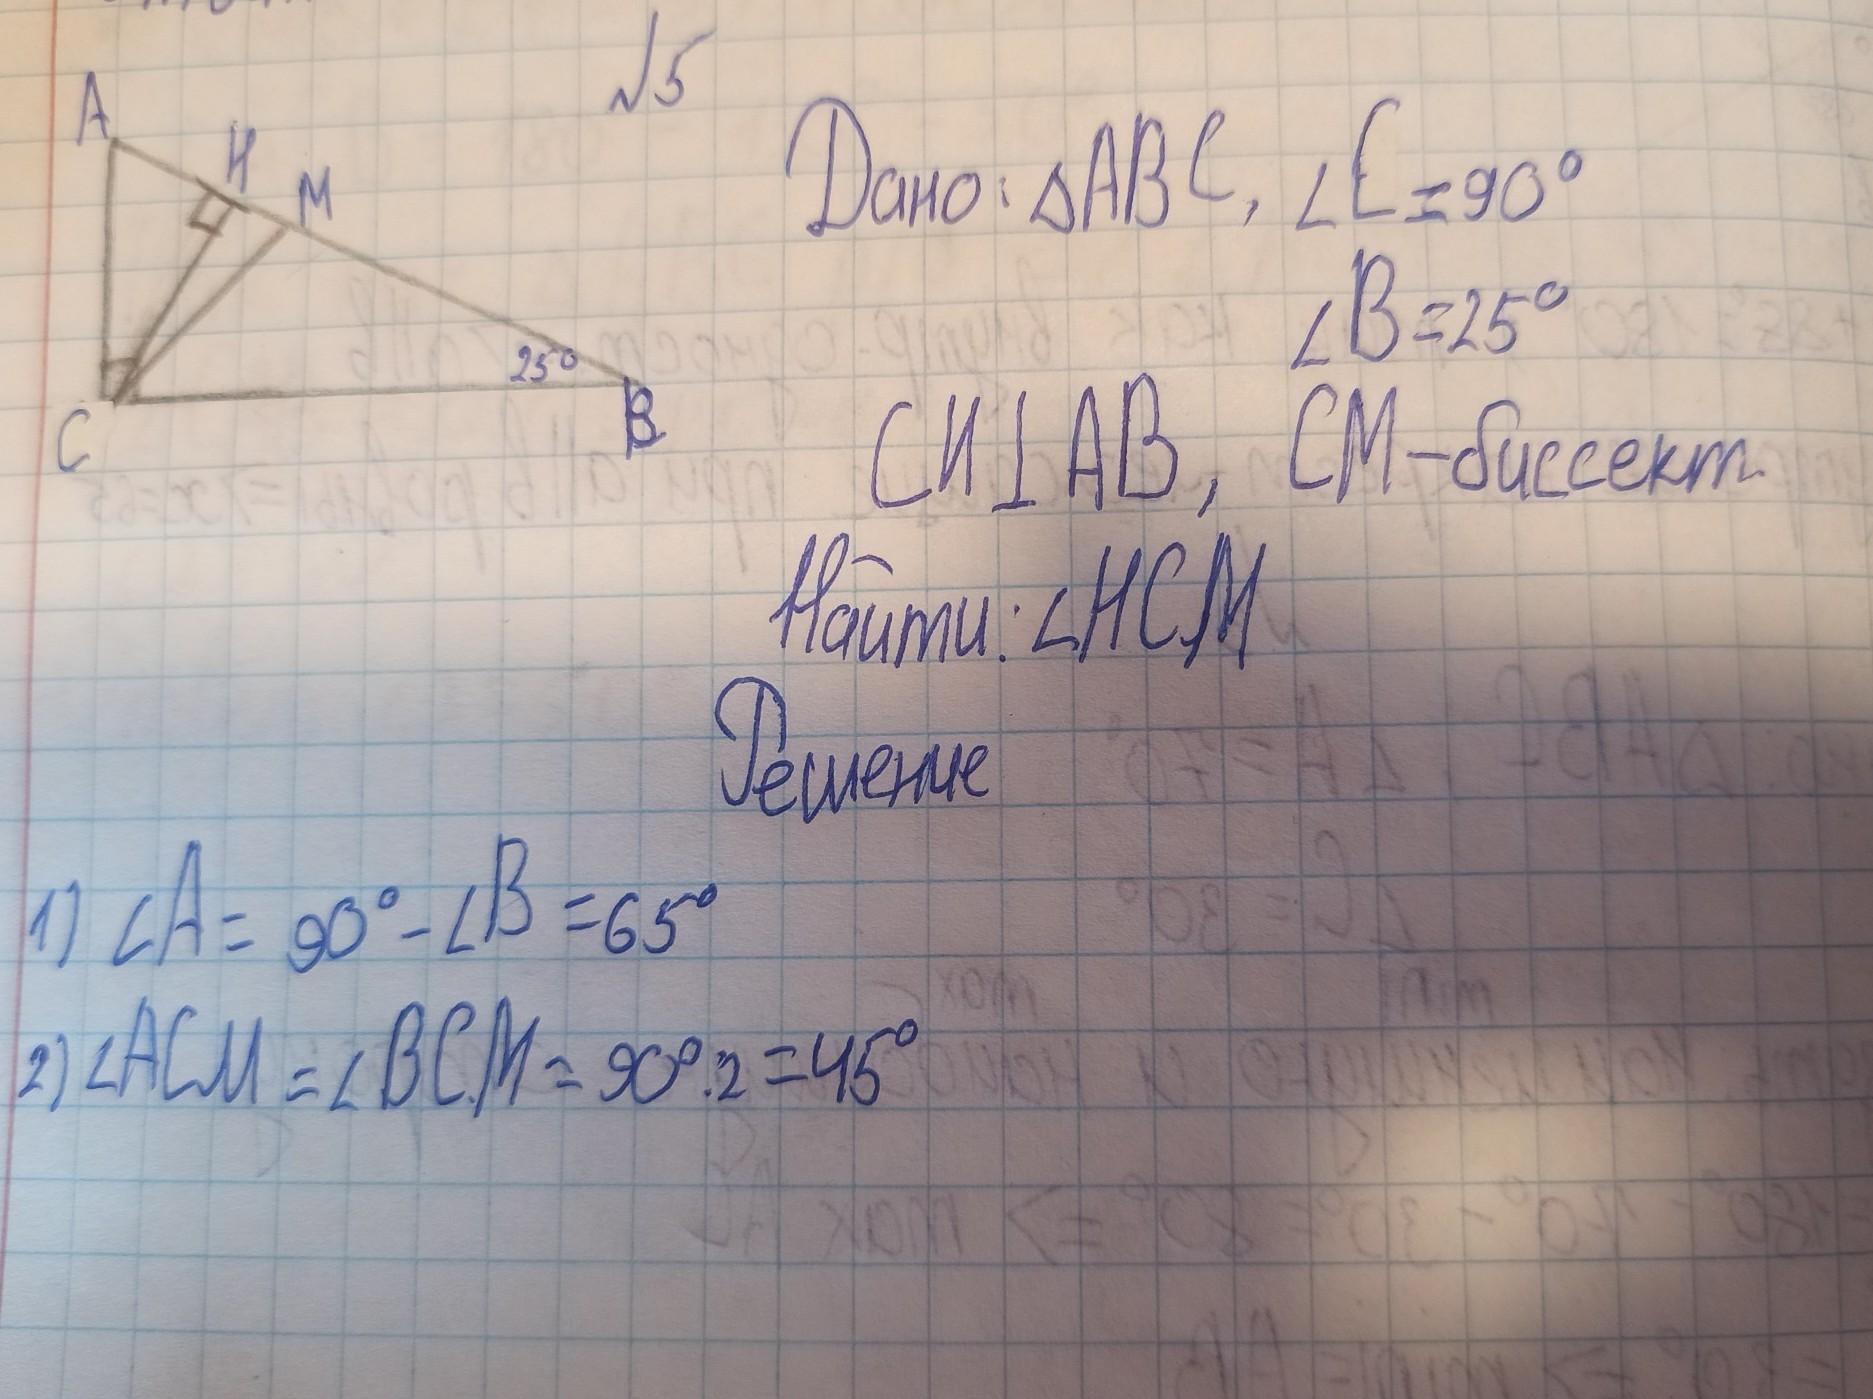 №5
A
H
M
25°
C
B
Дано: △ABC, ∠C=90°
∠B=25°
CH⊥AB, CM-биссект.
Найти: ∠HCM
Решение
1) ∠A= 90°-∠B=65°
2) ∠ACM=∠BCM=90°:2=45°